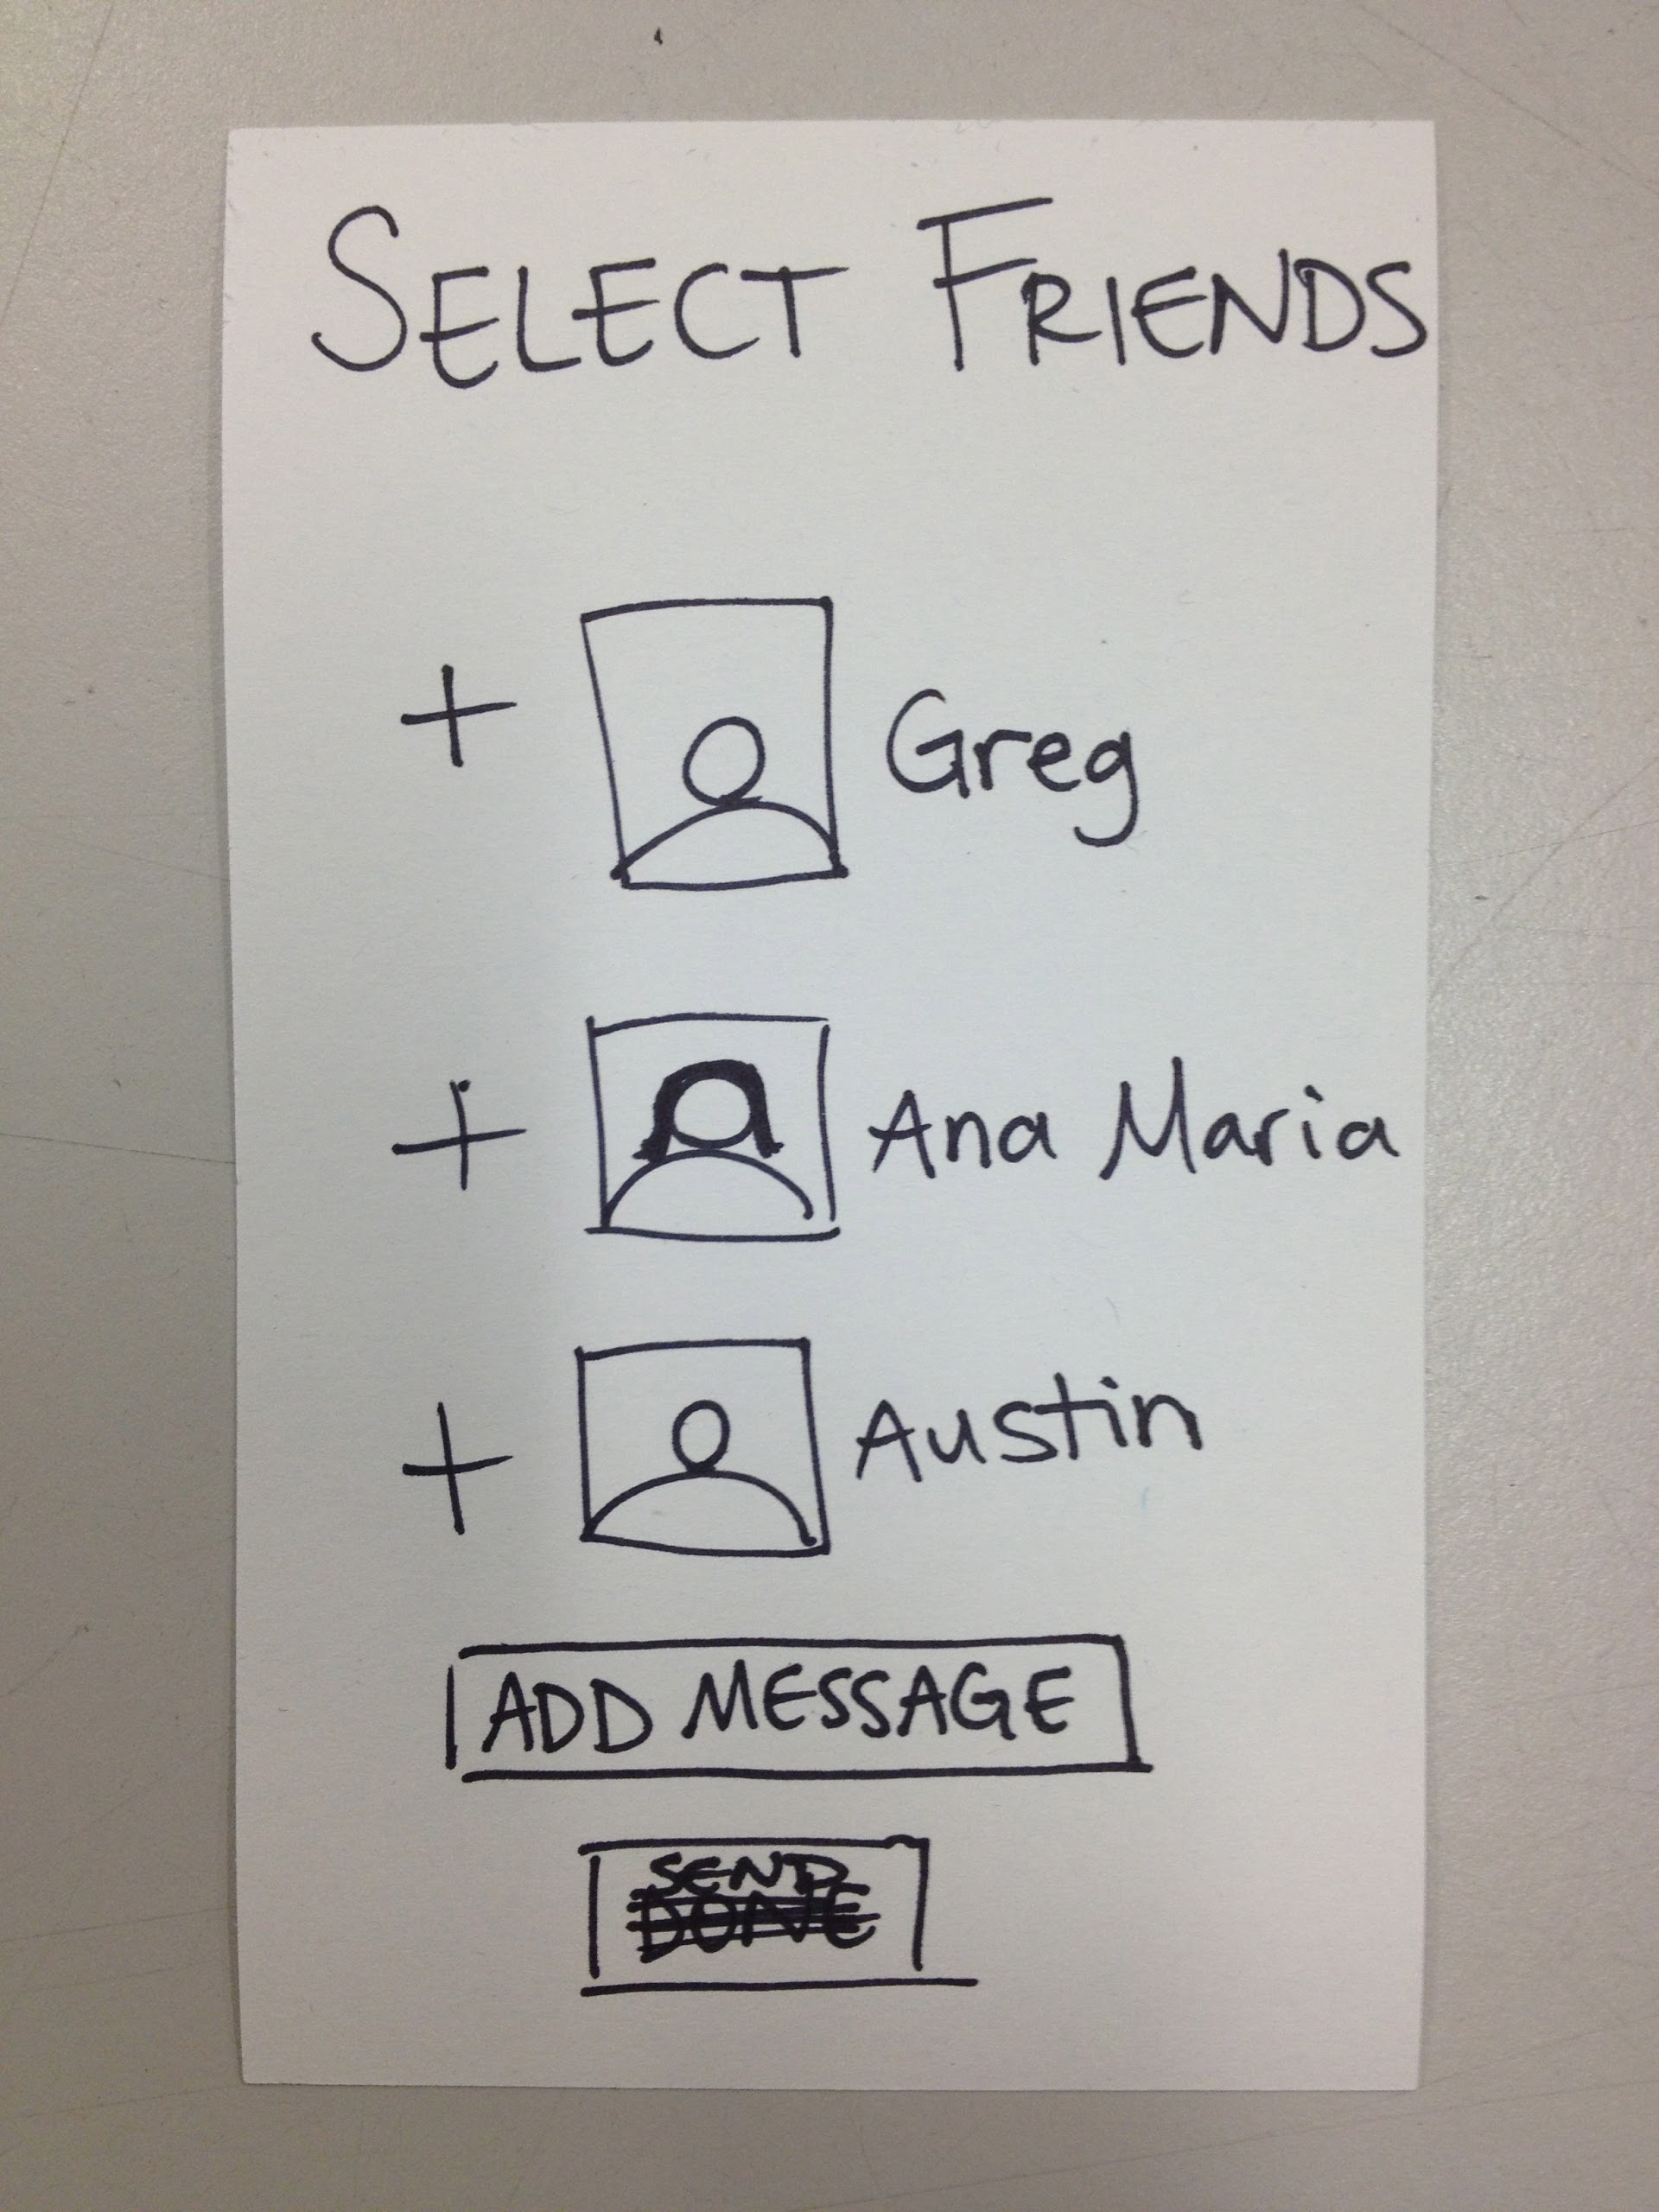 SELECT FRIENDS
+ Greg
+ Ana Maria
+ Austin
ADD MESSAGE
SEND
DONE